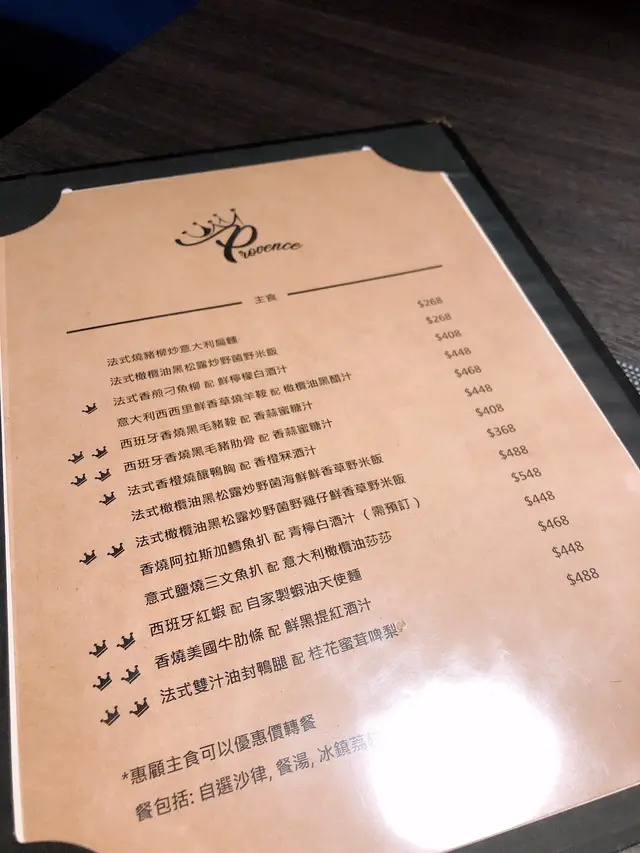 Provence
主食
法式燒豬柳炒意大利扁麵 $268
法式橄欖油黑松露炒野菌野米飯 $268
法式香煎刁魚柳 配 鮮檸檬白酒汁 $408
意大利西西里鮮香草燒羊鞍 配 橄欖油黑醋汁 $448
西班牙香燒黑毛豬鞍 配 香蒜蜜糖汁 $468
西班牙香燒黑毛豬肋骨 配 香蒜蜜糖汁 $448
法式香橙燒釀鴨胸 配 香橙冧酒汁 $408
法式橄欖油黑松露炒野菌海鮮鮮香草野米飯 $368
法式橄欖油黑松露炒野菌野雞仔鮮香草野米飯 $488
香燒阿拉斯加鱈魚扒 配 青檸白酒汁（需預訂） $548
意式鹽燒三文魚扒 配 意大利橄欖油莎莎 $448
西班牙紅蝦 配 自家製蝦油天使麵 $468
香燒美國牛肋條 配 鮮黑提紅酒汁 $448
法式雙汁油封鴨腿 配 桂花蜜茸啤梨 $488
*惠顧主食可以優惠價轉餐
餐包括: 自選沙律, 餐湯, 冰鎮